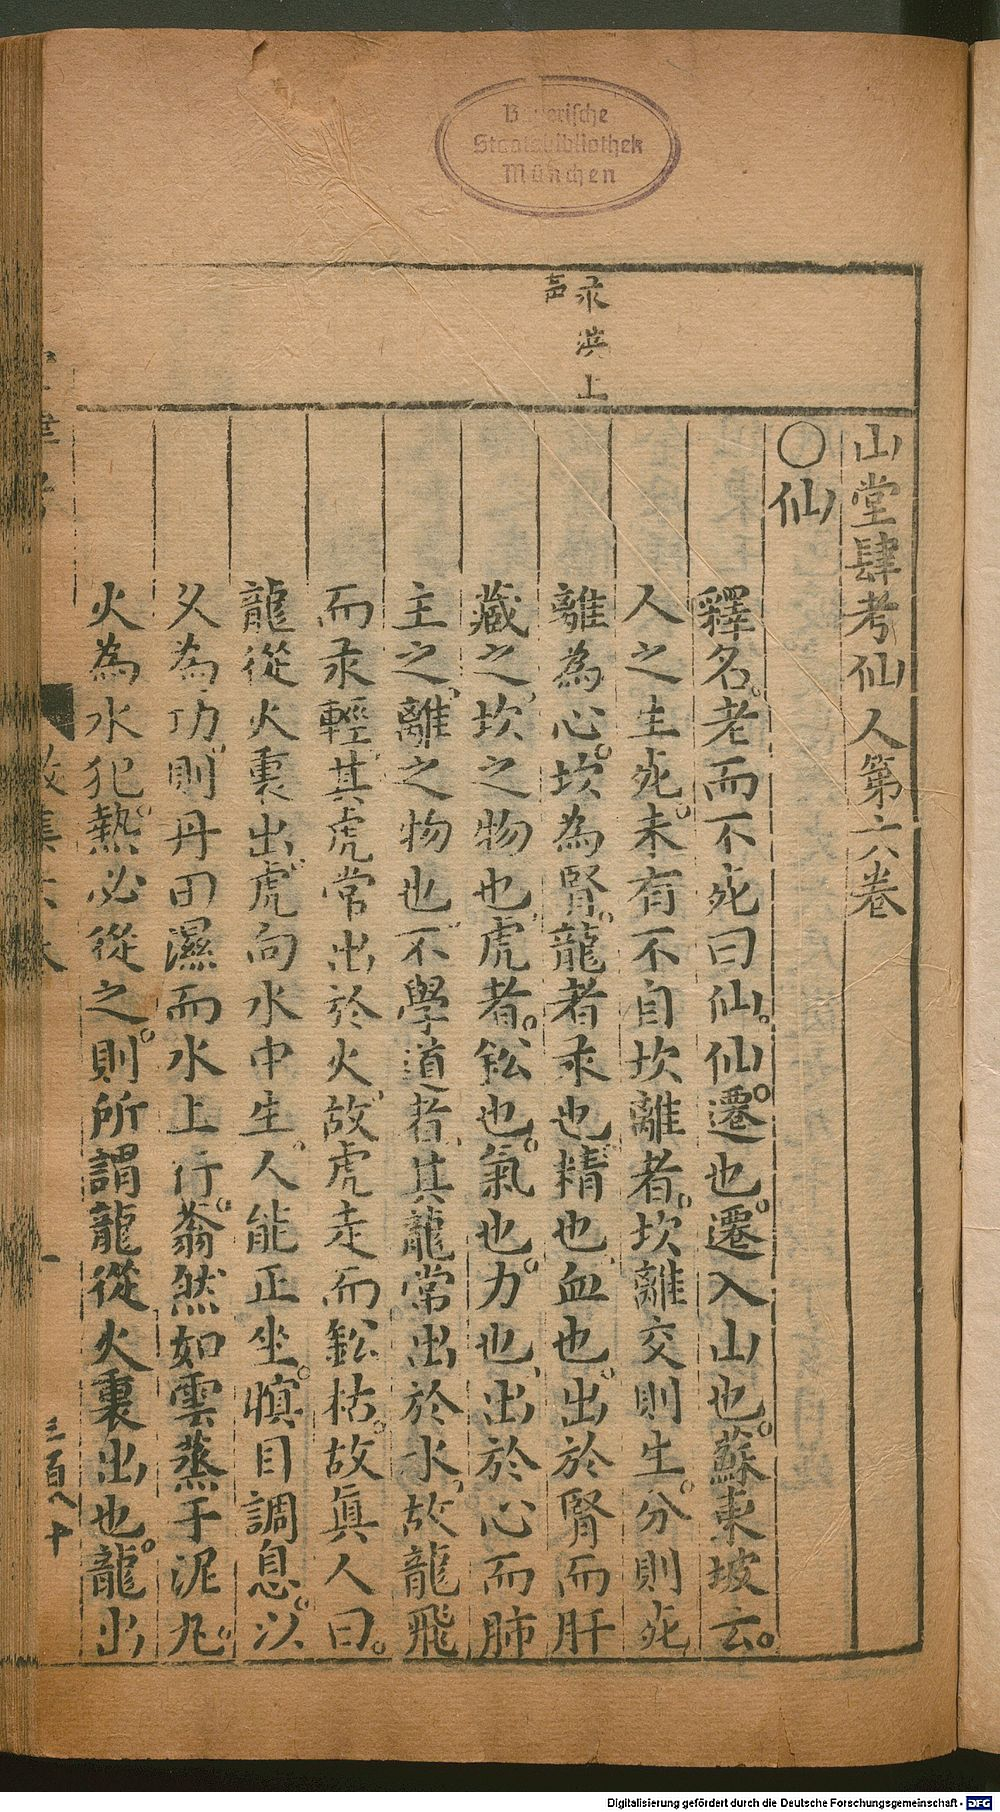 Bayerische
Staatsbibliothek
München
汞澒上
声
山堂肆考仙人第六卷
○仙
釋名。老而不死曰仙。仙。遷也。遷入山也。蘇東坡云。
人之生死。未有不自坎離者。坎離交則生。分則死
離為心。坎為腎。龍者汞也。精也。血也。出於腎而肝
藏之、坎之物也。虎者。鈆也。氣也。力也、出於心而肺
主之、離之物也、不學道者、其龍常出於水、故龍飛
而汞輕、其虎常出於火、故虎走而鈆枯。故真人曰。
龍從火裏出、虎向水中生、人能正坐。瞋目調息。以
久為功、則丹田濕而水上行。蓊然如雲蒸于泥丸。
火為水犯。熱必從之。則所謂龍從火裏出也。龍出
三百八十
Digitalisierung gefördert durch die Deutsche Forschungsgemeinschaft - DFG